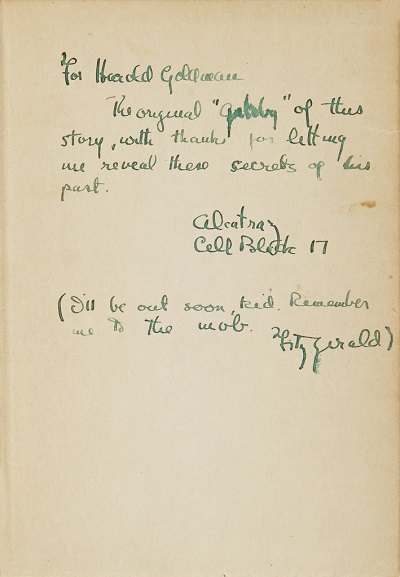 For Harold Goldman
The original "Gatsby" of this
story, with thanks for letting
me reveal these secrets of his
past.
Alcatraz
Cell Block 17
(I'll be out soon, kid. Remember
me to the mob. Fitzgerald)